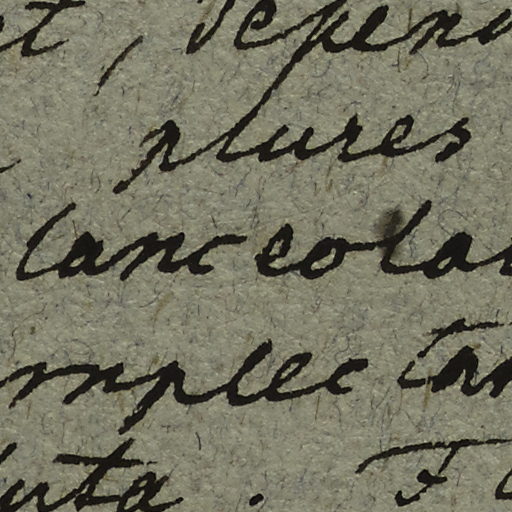 t, depend
plures
lanceola
mplectan
uta. F